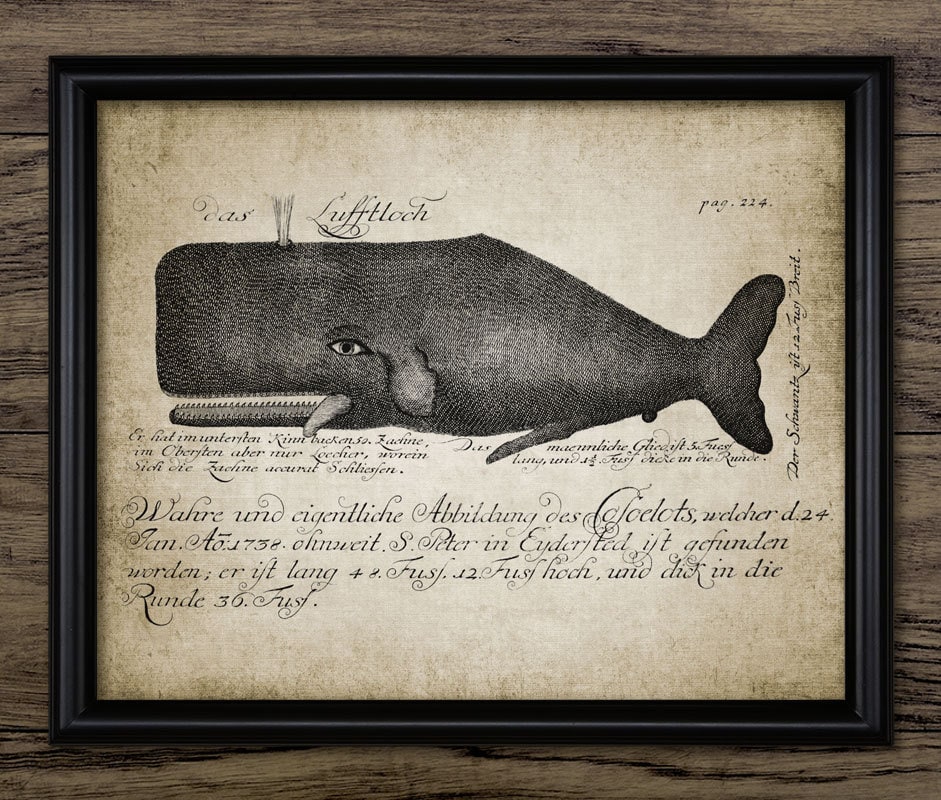 das Lufftloch
pag. 224.
Der Schwantz ist 12 Fusz Breit.
Er hat im untersten Kinnbacken 50. Zaehne,
im Obersten aber nur Loecher, worein
Sich die Zaehne accurat Schliessen.
Das maennliche Glied ist 3. Fuesz
lang, und 1½ Fusz dicke in die Runde.
Wahre und eigentliche Abbildung des Casoelots, welcher d. 24
Jan. Ao. 1738. ohnweit S. Peter in Eydersted ist gefunden
worden; er ist lang 48. Fusz. 12. Fusz hoch, und dick in die
Runde 36. Fusz.